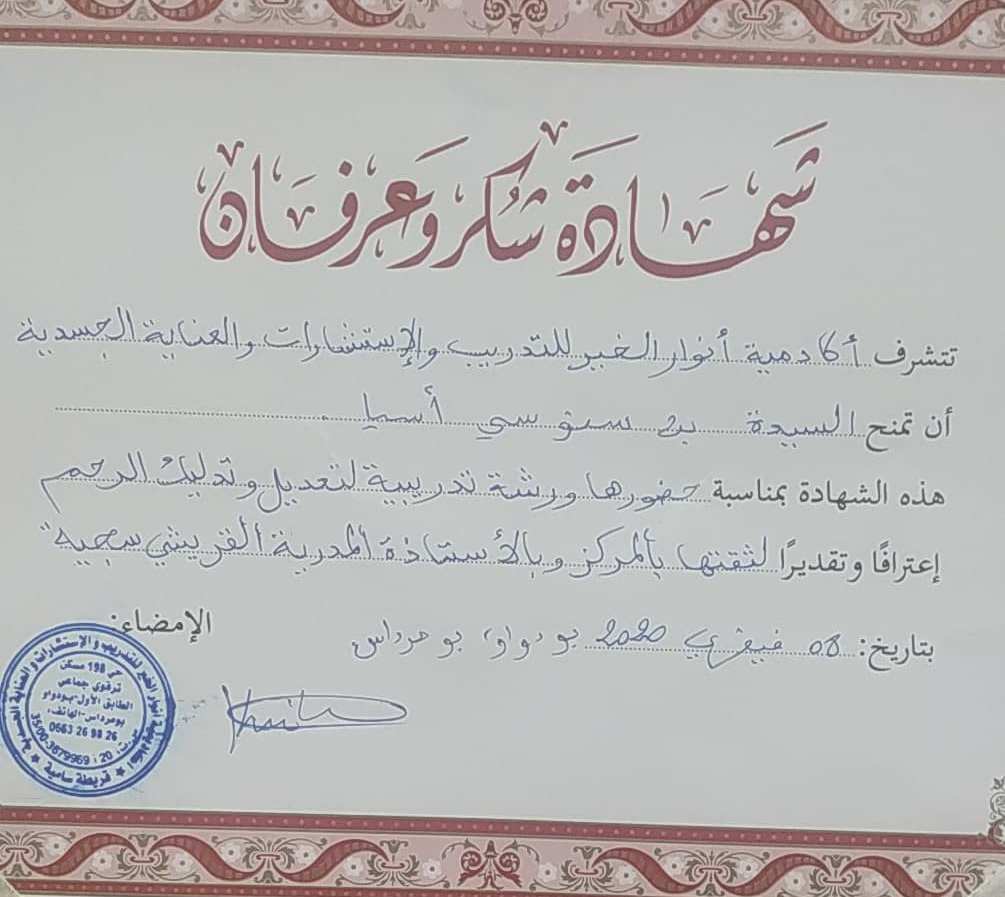 شهادة شكر وعرفان
تتشرف أكادمية أنوار الخير للتدريب والإستشارات والعناية الجسدية
أن تمنح السيدة بن سنوسي أسيا
هذه الشهادة بمناسبة حضورها ورشة تدريبية لتعديل وتدليك الرحم
إعترافًا وتقديرًا لثقتها بالمركز وبالأستاذة المدربة القريشي سجية
بتاريخ: 08 فيفري 2020 بودواو، بومرداس
الإمضاء:
أنوار الخير للتدريب والإستشارات والعناية
حي 198 مسكن
ترقوي جماعي
الطابق الأول-بودواو
بومرداس-الهاتف:
0663 26 98 26
35/00-3679969
قريطة سامية